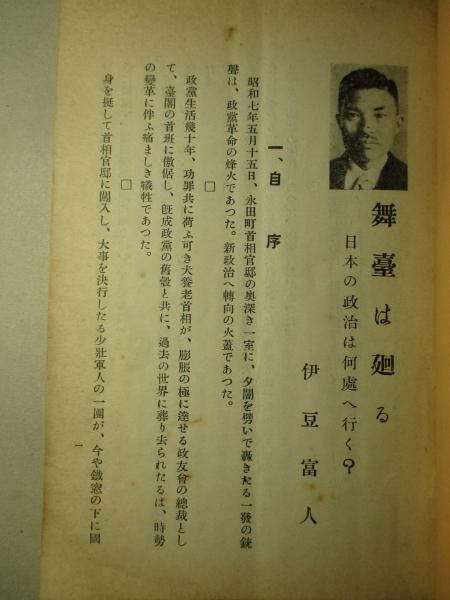 舞臺は廻る
日本の政治は何處へ行く?
伊豆富人
一、自序
昭和七年五月十五日、永田町首相官邸の奥深き一室に、夕闇を劈いで轟きたる一發の銃
聲は、政黨革命の烽火であつた。新政治へ轉向の火蓋であつた。
□
政黨生活幾十年、功罪共に荷ふ可き犬養老首相が、膨脹の極に達せる政友會の總裁とし
て、臺閣の首班に傲倨し、旣成政黨の舊殼と共に、過去の世界に葬り去られたるは、時勢
の變革に伴ふ痛ましき犧牲であつた。
□
身を挺して首相官邸に闖入し、大事を決行したる少壯軍人の一團が、今や鐵窓の下に國
一